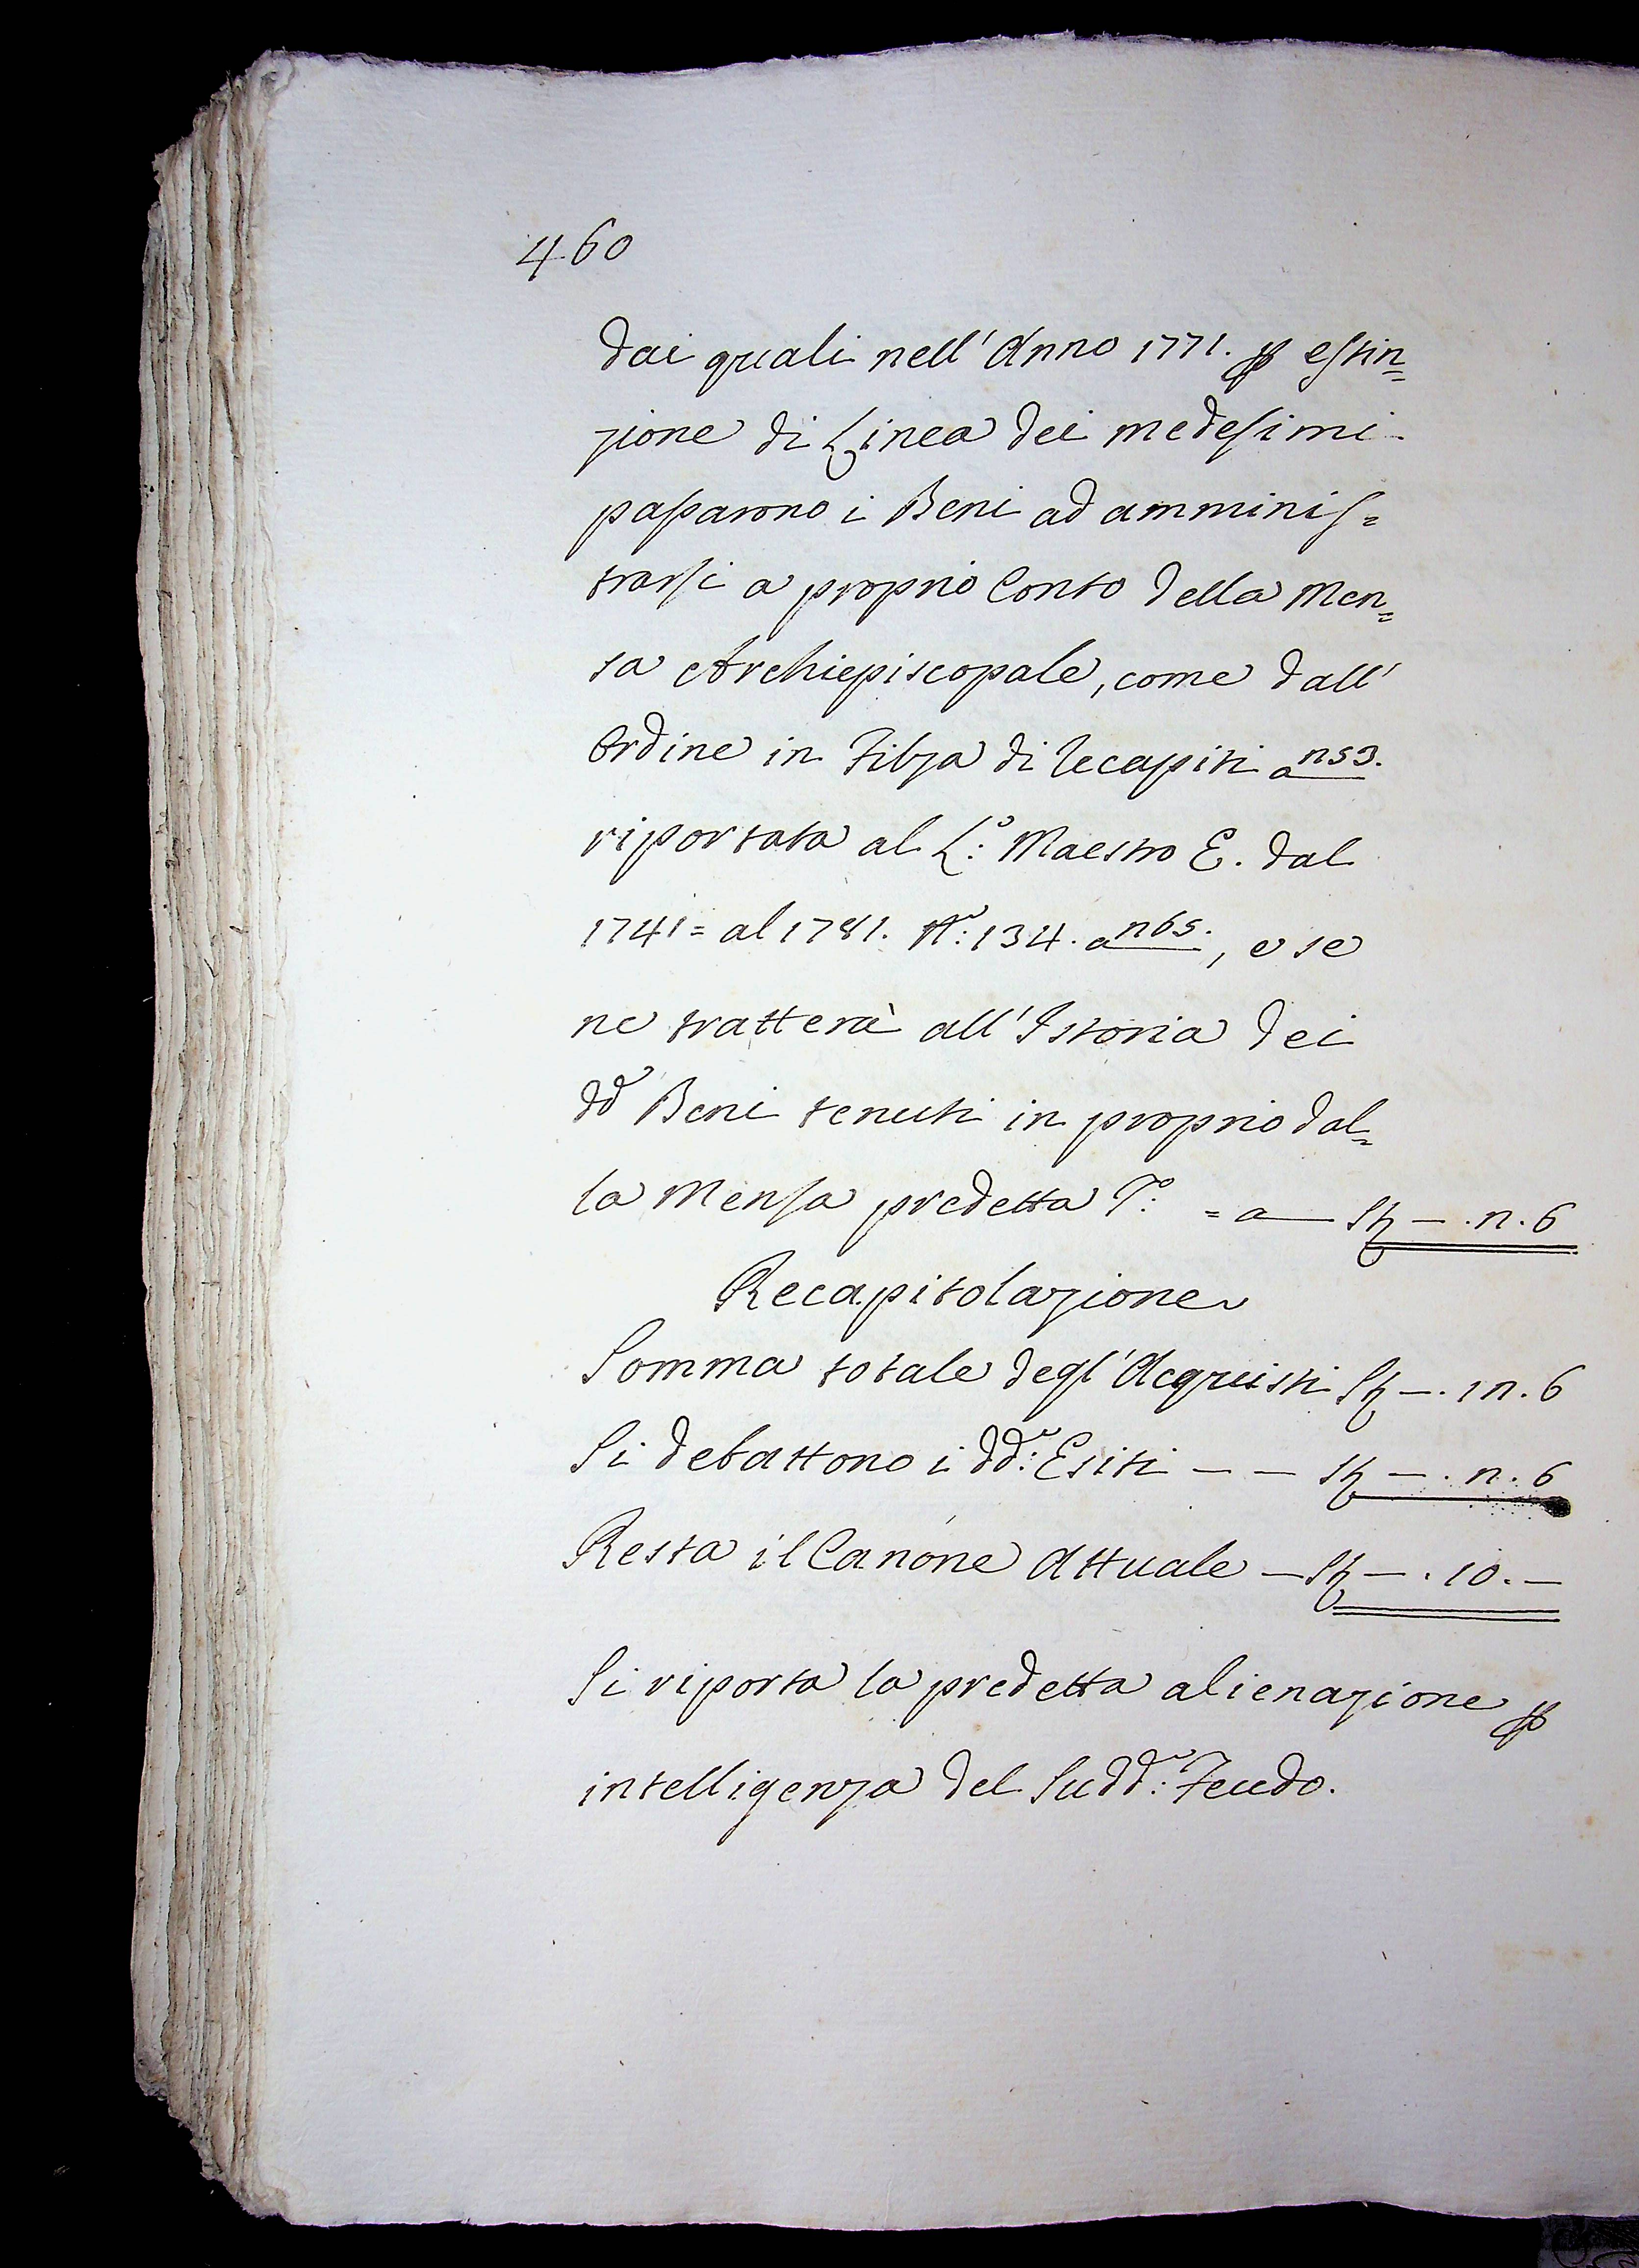 460
Dai quali nell' Anno 1771. ꝑ estin=
zione di Linea dei medesimi
passarono i Beni ad amminis=
trarsi a proprio Conto della Men=
sa Archiepiscopale, come dall'
Ordine in Filza di recapiti a n53.
riportata al L.º Maestro E. dal
1741= al 1781. N.º: 134. a n65., e se
ne tratterà all' Istoria dei
dd.i Beni tenuti in proprio dal=
la Mensa predetta = a — —. n. 6
Recapitolazione
Somma totale degl' Acquisti —. 1n. 6
Si debattono i dd.i: Esiti — — —. n. 6
Resta il Canone Attuale — —. 10. —
Si riporta la predetta alienazione ꝑ
intelligenza del Sudd.º: Feudo.